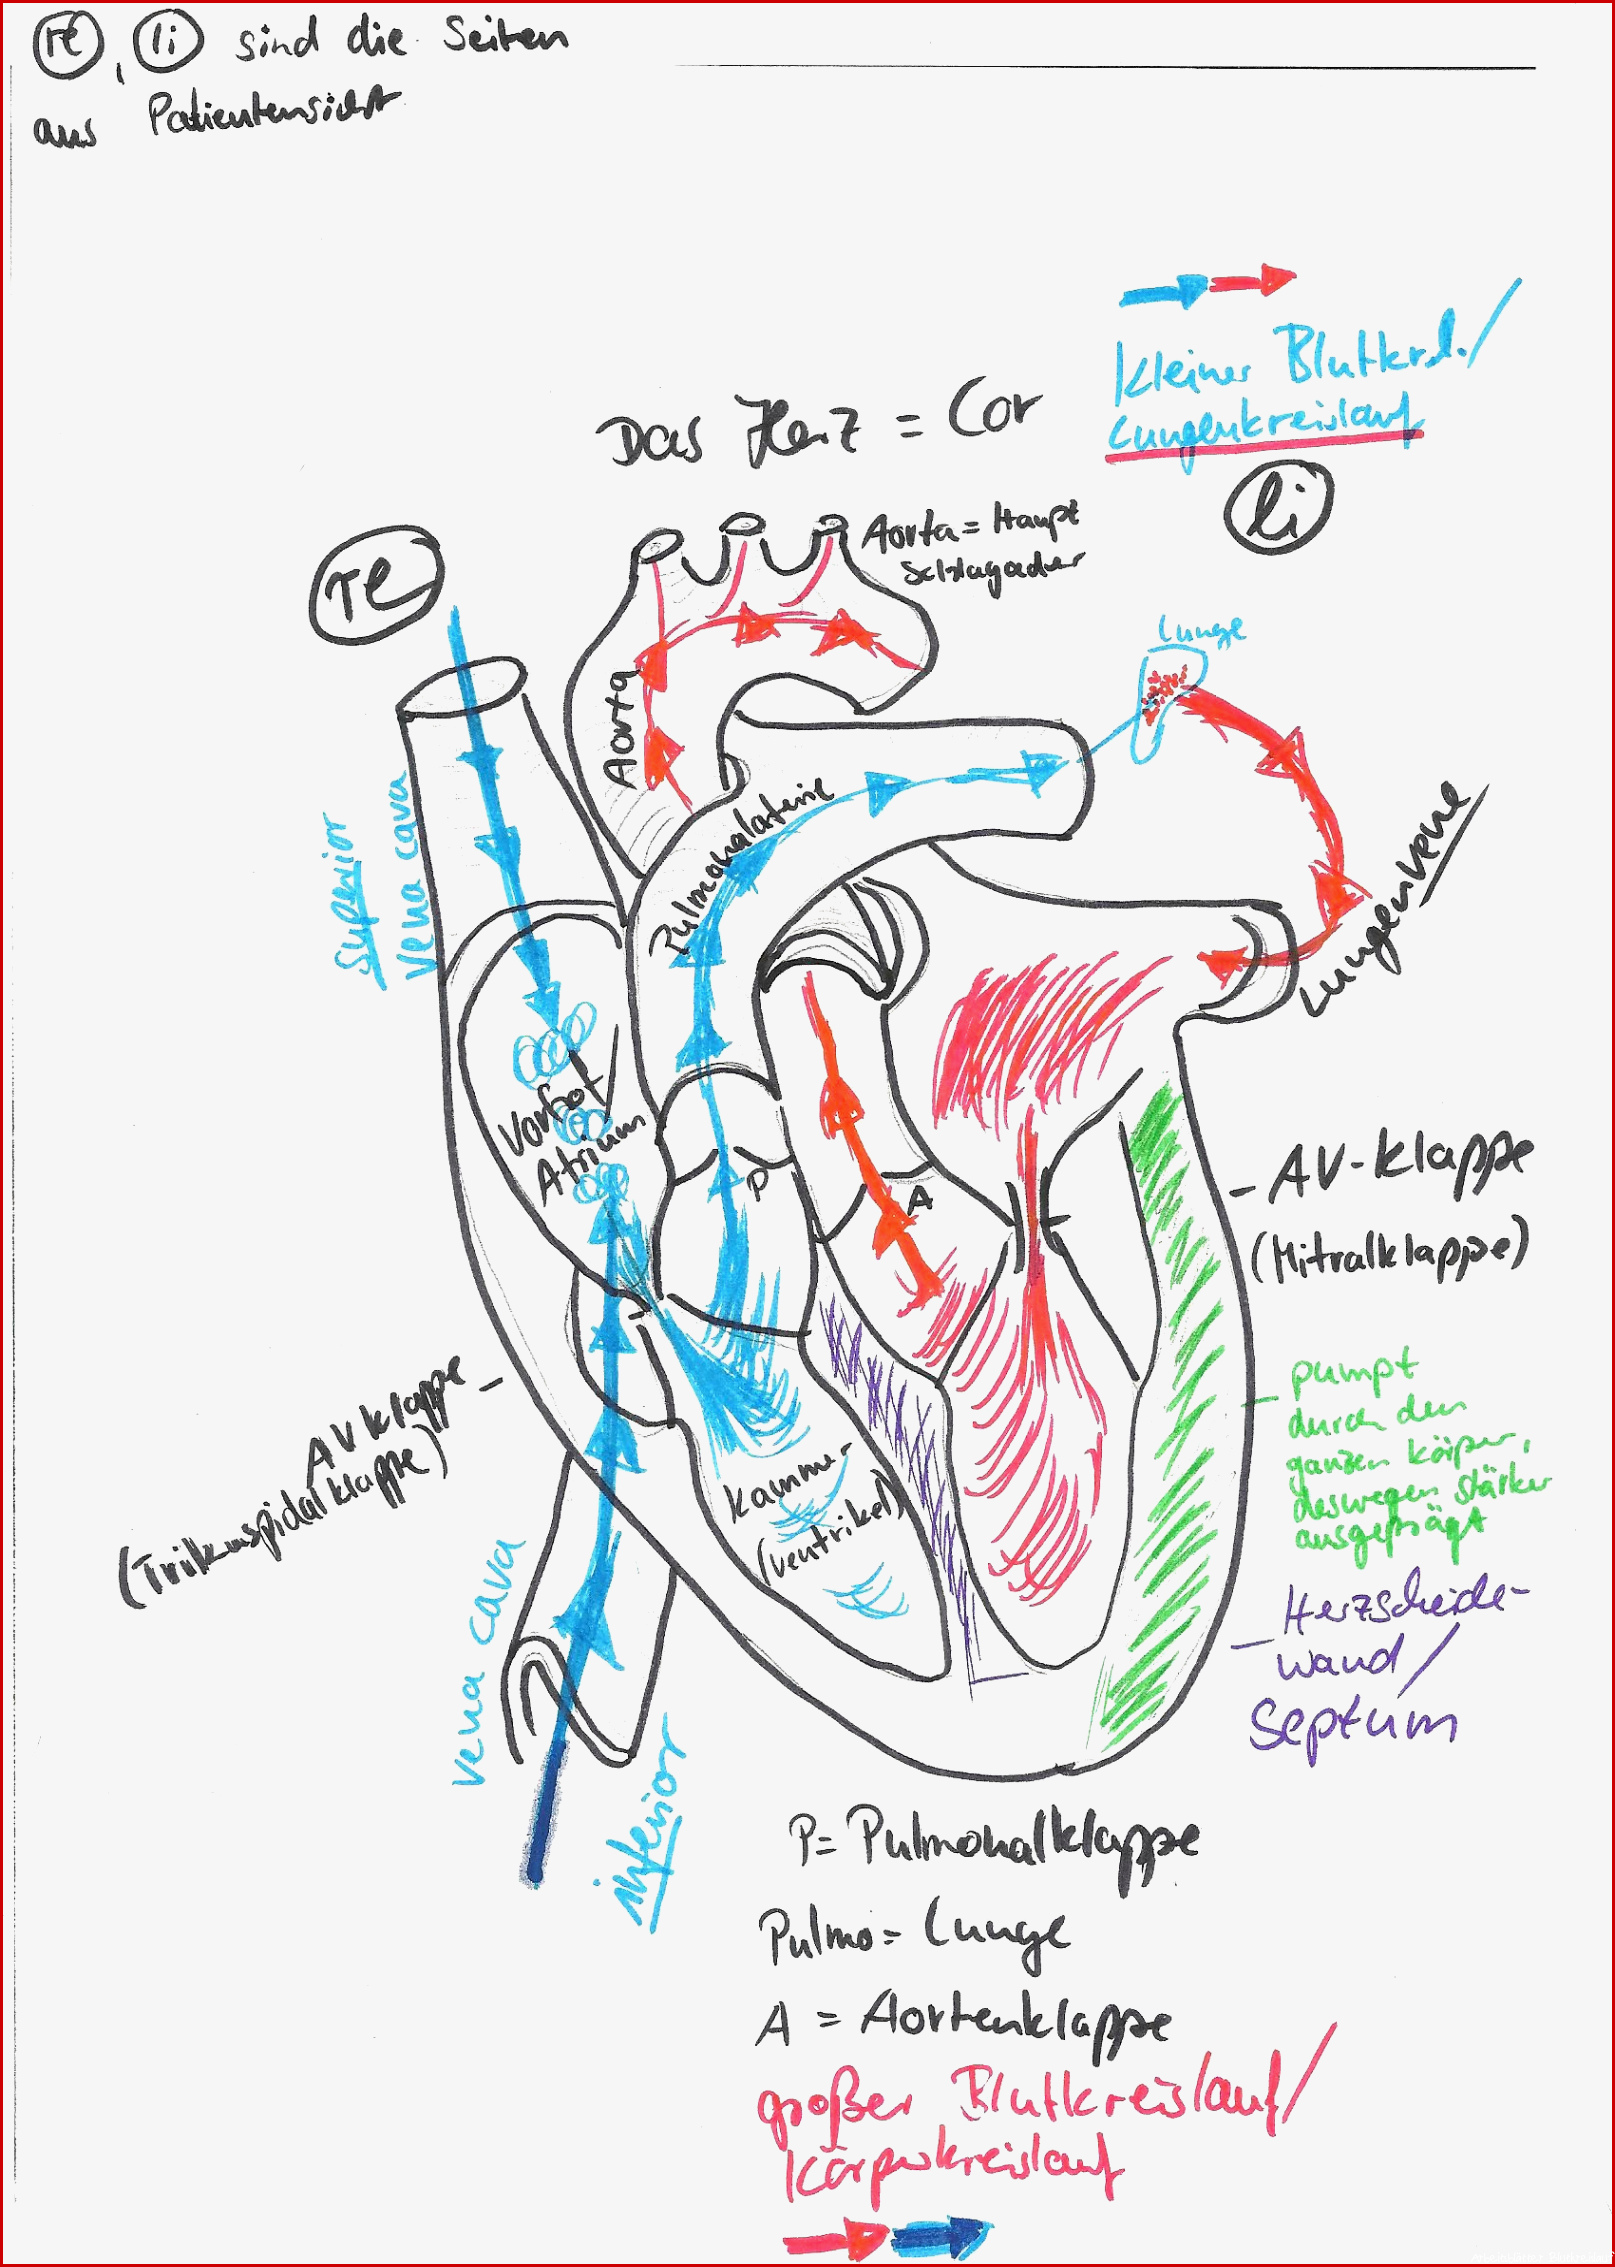 re, li sind die Seiten
aus Patientensicht
kleiner Blutkrsl./
Lungenkreislauf
Das Herz = Cor
li
re
Aorta = Haupt
Schlagader
Lunge
Aorta
Pulmonalaterie
Superior
Vena cava
Lungenvene
Vorhof/
Atrium
P
A
AV-Klappe
(Mitralklappe)
AV Klappe
(Trikuspidalklappe)
pumpt
durch den
ganzen Körper,
deswegen stärker
ausgeprägt
Kammer
(ventrikel)
Herzscheide-
wand/
Septum
vena cava
inferior
P= Pulmonalklappe
Pulmo= Lunge
A = Aortenklappe
großer Blutkreislauf/
Körperkreislauf